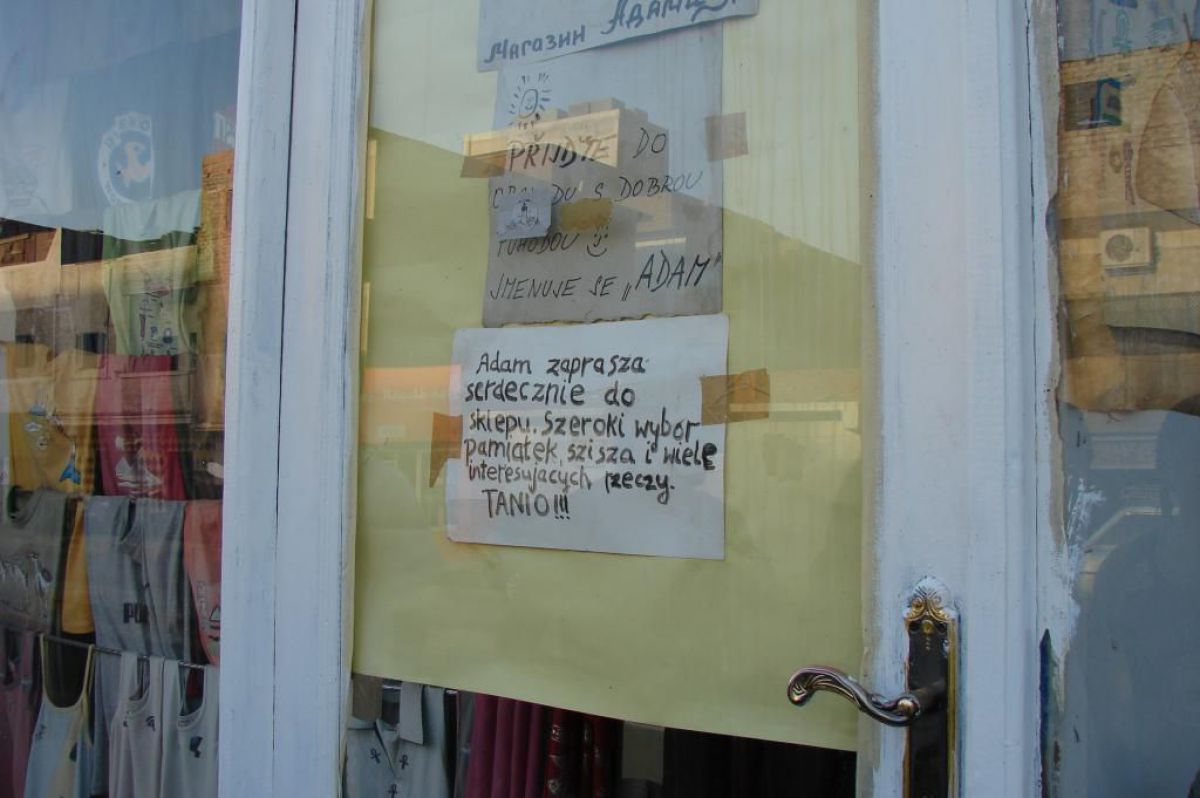 Магазин
PŘIJĎTE DO
S DOBROU
POHODOU
JMENUJE SE „ADAM"
Adam zaprasza
serdecznie do
sklepu. Szeroki wybor
pamiątek, szisza i wiele
interesujacych rzeczy.
TANIO!!!